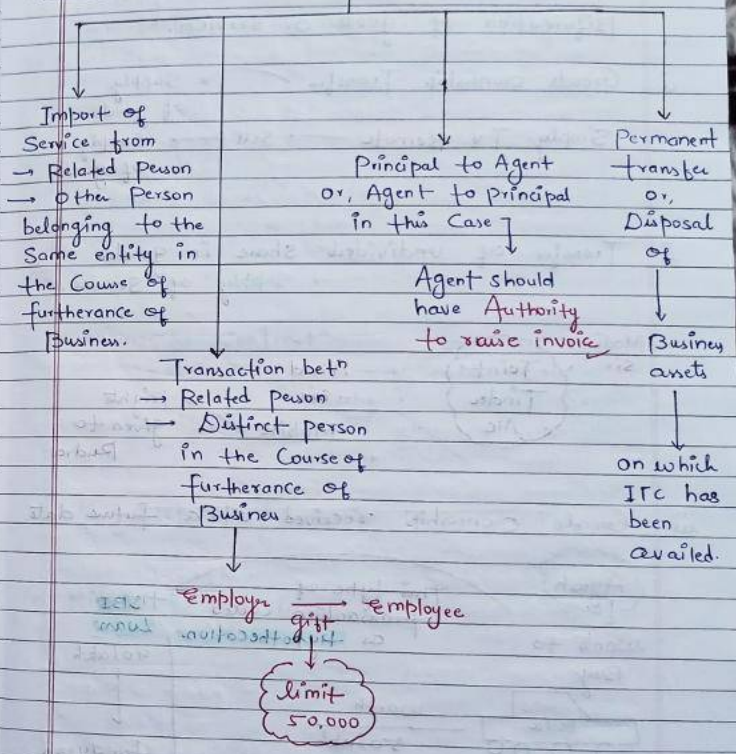 Import of
Service from
→ Related Person
→ Other Person
belonging to the
Same entity in
the Course of
furtherance of
Business.
Transaction betⁿ
→ Related person
→ Distinct person
in the Course of
furtherance of
Business
Employer → Employee
gift
limit
50,000
Principal to Agent
or, Agent to principal
in this Case
Agent should
have Authority
to raise invoice
Permanent
transfer
or,
Disposal
of
Business
assets
on which
ITC has
been
availed.